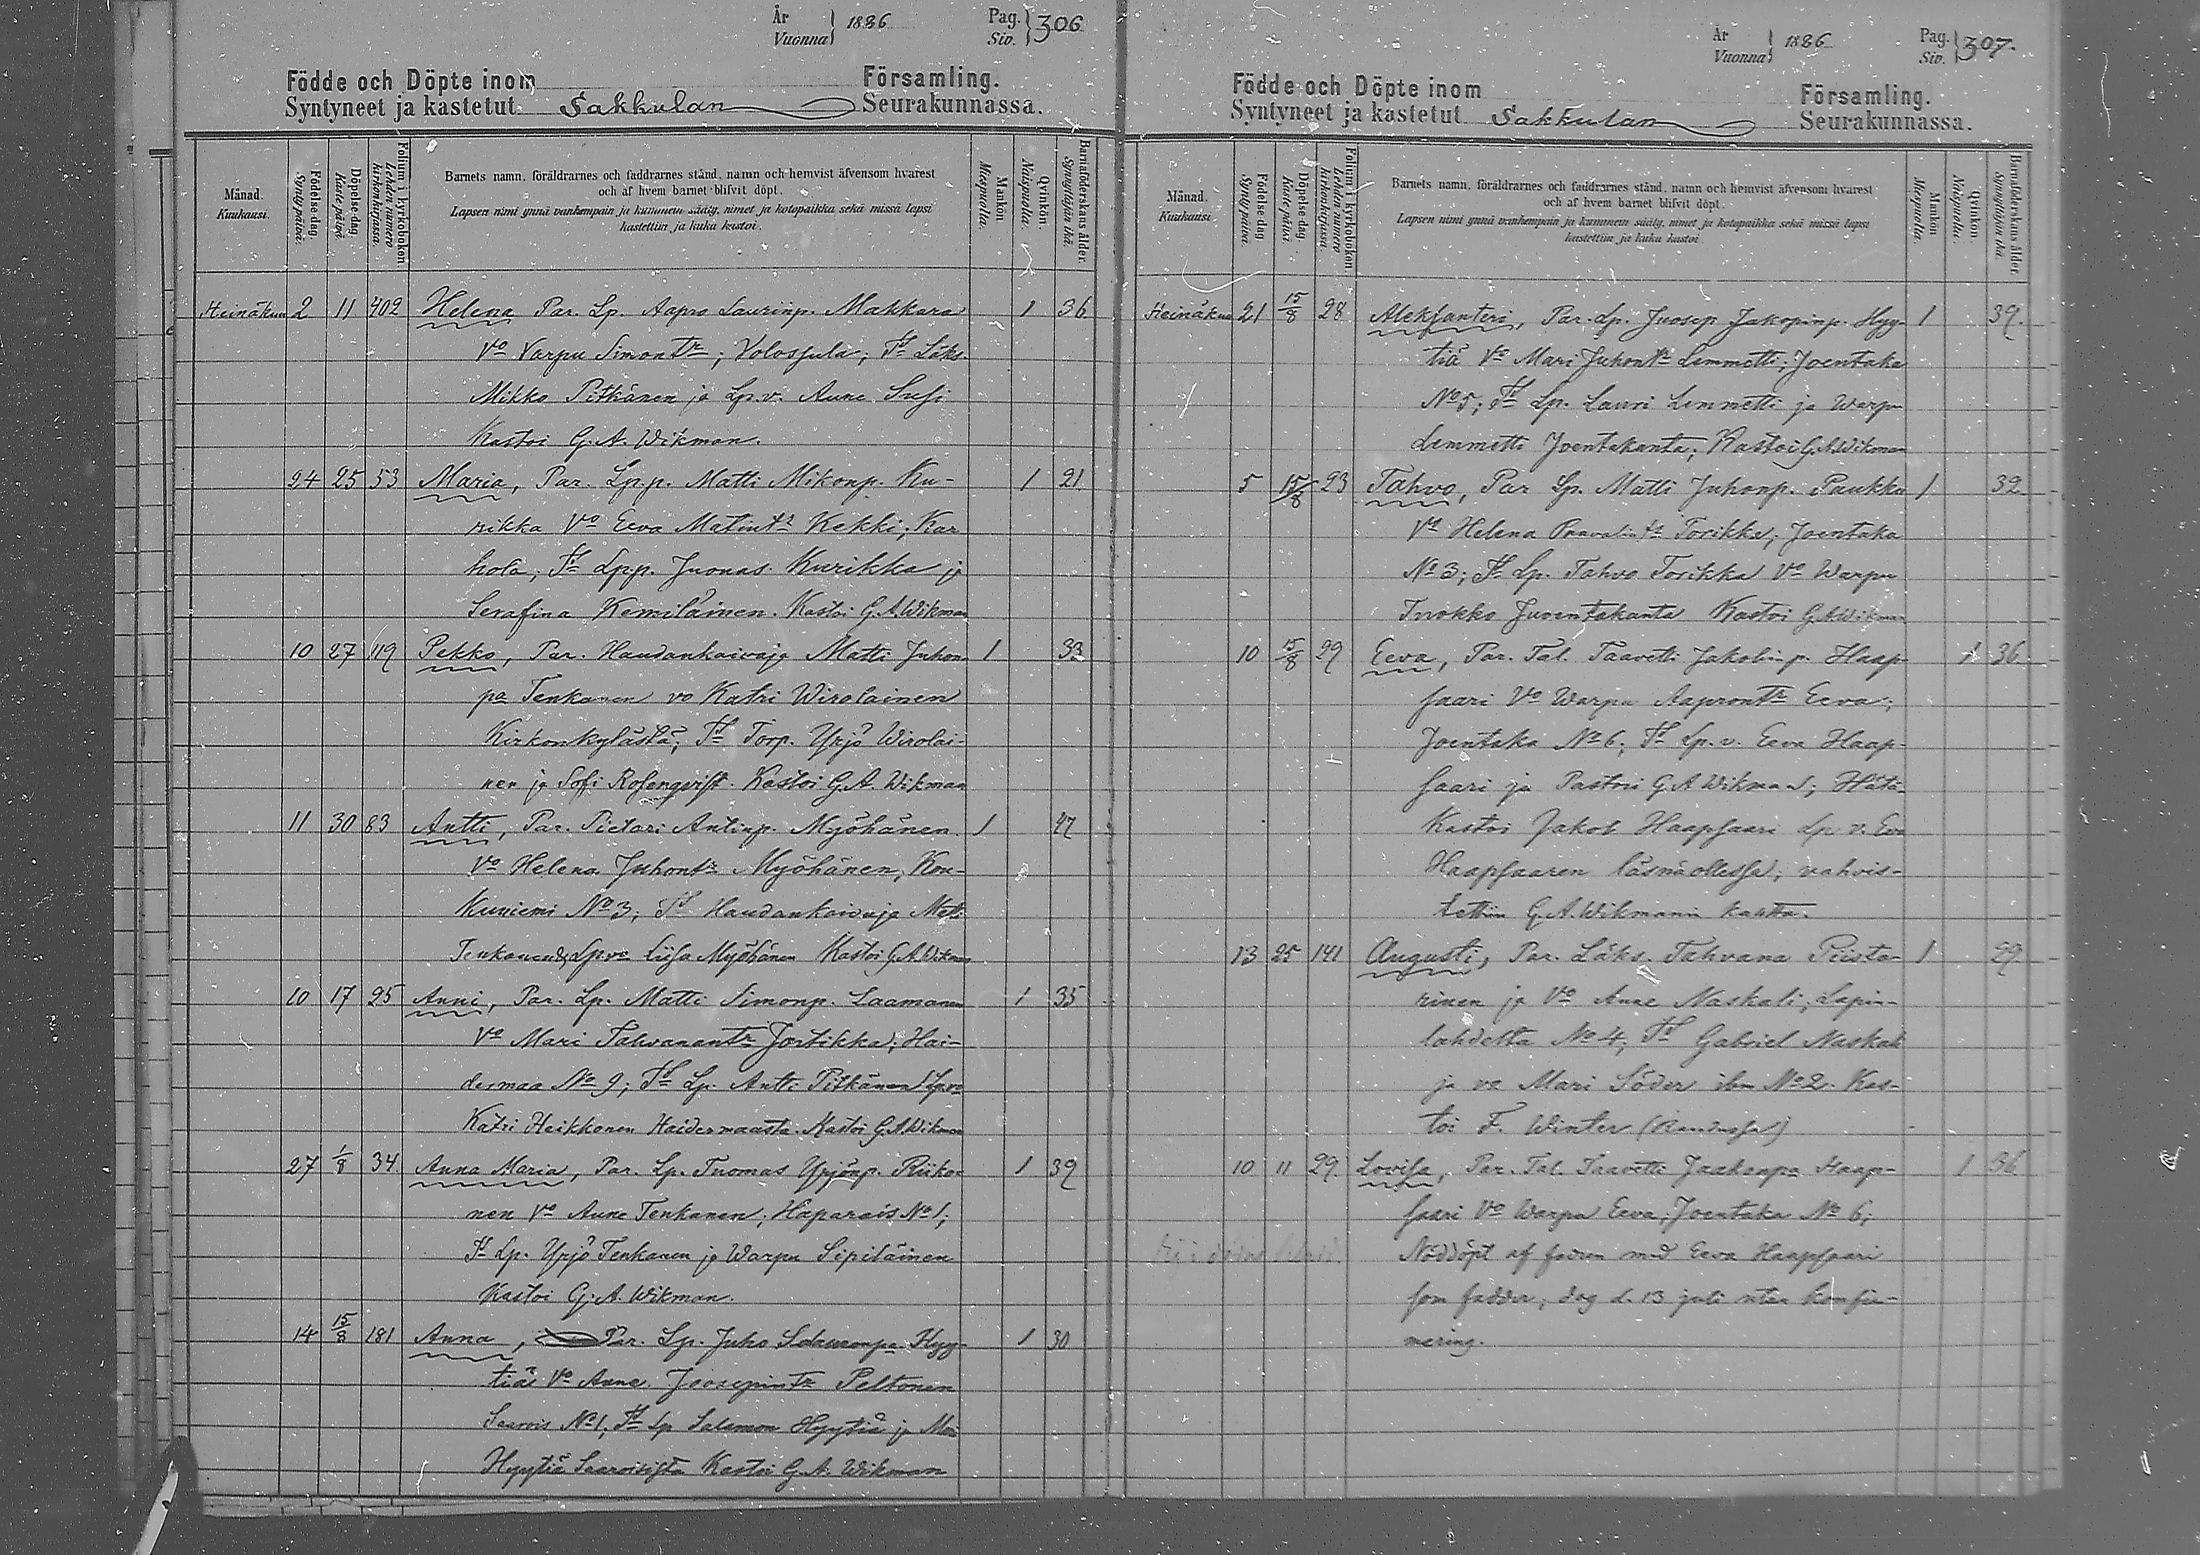 År
Vuonna } 1886
Pag.
Siv. } 306
Födde och Döpte inom Församling.
Syntyneet ja kastetut Sakkulan Seurakunnassa.
Månad.
Kuukausi.
Födelse-dag.
Synty päivä.
Döpelse-dag.
Kaste päivä.
Folium i kyrkoboken
Lehden numero kirkonkirjassa.
Barnets namn, föräldrarnes och faddrarnes stånd, namn och hemvist äfvensom hvarest
och af hvem barnet blifvit döpt.
Lapsen nimi ynnä vanhempain ja kummein sääty, nimet ja kotopaikka sekä missä lapsi
kastettiin ja kuka kastoi.
Mankön.
Miespuolia.
Qvinkön.
Naispuolia.
Barnaföderskans ålder.
Synnyttäjän ikä.
Heinäkuu 2 11 402 Helena Par. Lp. Aapro Laurinp. Makkara 1 36
Vo Varpu Simontr; Volossula; Td Läks.
Mikko Pitkänen ja Lp.v. Anne Susi
Kastoi G. A. Wikman.
24 25 53 Maria, Par. Lp.p. Matti Mikonp. Ku- 1 21
rikka Vo Eeva Matintr Kekki; Kar
hola; Td Lp.p. Juonas Kurikka ja
Serafina Kemiläinen. Kastoi G. A. Wikman
10 27 119 Pekko, Par. Haudankaivaja Matti Juhon 1 33
pa Tenkanen vo Katri Wirolainen
Kirkonkylästä; Td Torp. Yrjö Wirolai-
nen ja Sofi Rosenqvist. Kastoi G. A. Wikman
11 30 83 Antti, Par. Pietari Antinp. Myöhänen 1 27
Vo Helena Juhontr Myöhänen, Kou-
kuniemi No 3; Td Haudankaivaja Matti
Tenkanen ja Lpvo Liisa Myöhänen Kastoi G. A. Wikman
10 17 25 Anni, Par. Lp. Matti Simonp. Laamanen 1 35
Vo Mari Tahvanantr Jortikka; Hai-
dermaa No 9; Td Lp. Antti Pitkänen Lpvo
Katri Heikkonen Haidermaasta. Kastoi G. A. Wikman
27 1/8 34 Anna Maria, Par. Lp. Tuomas Yrjönp. Riiko- 1 39
nen Vo Anne Tenkanen; Haparais No 1;
Td Lp. Yrjö Tenkanen ja Warpu Sipiläinen
Kastoi G. A. Wikman.
14 15/8 181 Anna, Par. Lp. Juho Hyy- 1 30
tiäs Vo Anne Joosepintr Peltonen
Saarois No 1; Td Lp Salomon Hyytiä ja Mari
Hyytiä Kastoi G. A. Wikman
År
Vuonna } 1886
Pag.
Siv. } 307.
Födde och Döpte inom Församling.
Syntyneet ja kastetut Sakkulan Seurakunnassa.
Månad.
Kuukausi
Födelse-dag.
Synty päivä.
Döpelse-dag.
Kaste päivä.
Folium i kyrkoboken
Lehden numero kirkonkirjassa.
Barnets namn, föräldrarnes och faddrarnes stånd, namn och hemvist äfvensom hvarest
och af hvem barnet blifvit döpt.
Lapsen nimi ynnä vanhempain ja kummein sääty, nimet ja kotopaikka sekä missä lapsi
kastettiin ja kuka kastoi
Mankön
Miespuolia
Qvinkön
Naispuolia.
Barnaföderskans ålder.
Synnyttäjän ikä.
Heinäkuu 21 15/8 28 Aleksanteri, Par. Lp. Juosep Jakopinp. Hyy- 1 39.
tiä Vo Mari Juhontr Lemmetti; Joentaka
No 5; Td Lp. Lauri Lemmetti ja Warpu
Lemmetti Joentakanta; Kastoi G. A. Wikman
5 15/8 23 Tahvo, Par Lp. Matti Juhonp. Paukku 1 32
Vo Helena Paavalintr Torikka; Joentaka
No 3; Td Lp. Tahvo Torikka Vo Warpu
Inokko Kastoi G. A. Wikman
10 15/8 29 Eeva, Par. Tal. Taavetti Jakobinp. Haap- 1 36
saari Vo Warpu Aaprontr Eeva;
Joentaka No 6; Td Lp.v. Eeva Haap-
saari ja Pastori G. A. Wikman; Hätä-
Kastoi Jakob Haapsaari Lp.v. Eva
Haapsaaren läsnäollessa; vahvis-
tettiin G. A. Wikmanin kautta.
13 25 141 Augusti, Par. Läks. Tahvana Piista- 1 29
rinen ja Vo Anne Naskali; Lapin-
lahdelta No 4; Td Gabriel Naskali
ja vo Mari Söder ibm No 2. Kas-
toi F. Winter (Raudussa)
10 11 29. Lovisa, Par. Tal. Taavetti Jaakonpa Haap- 1 36
saari Vo Warpu Eeva; Joentaka No 6;
Nöddöpt af fadren med Eeva Haapsaari
som fadder; dog d. 13 juli utan konfir-
mering.